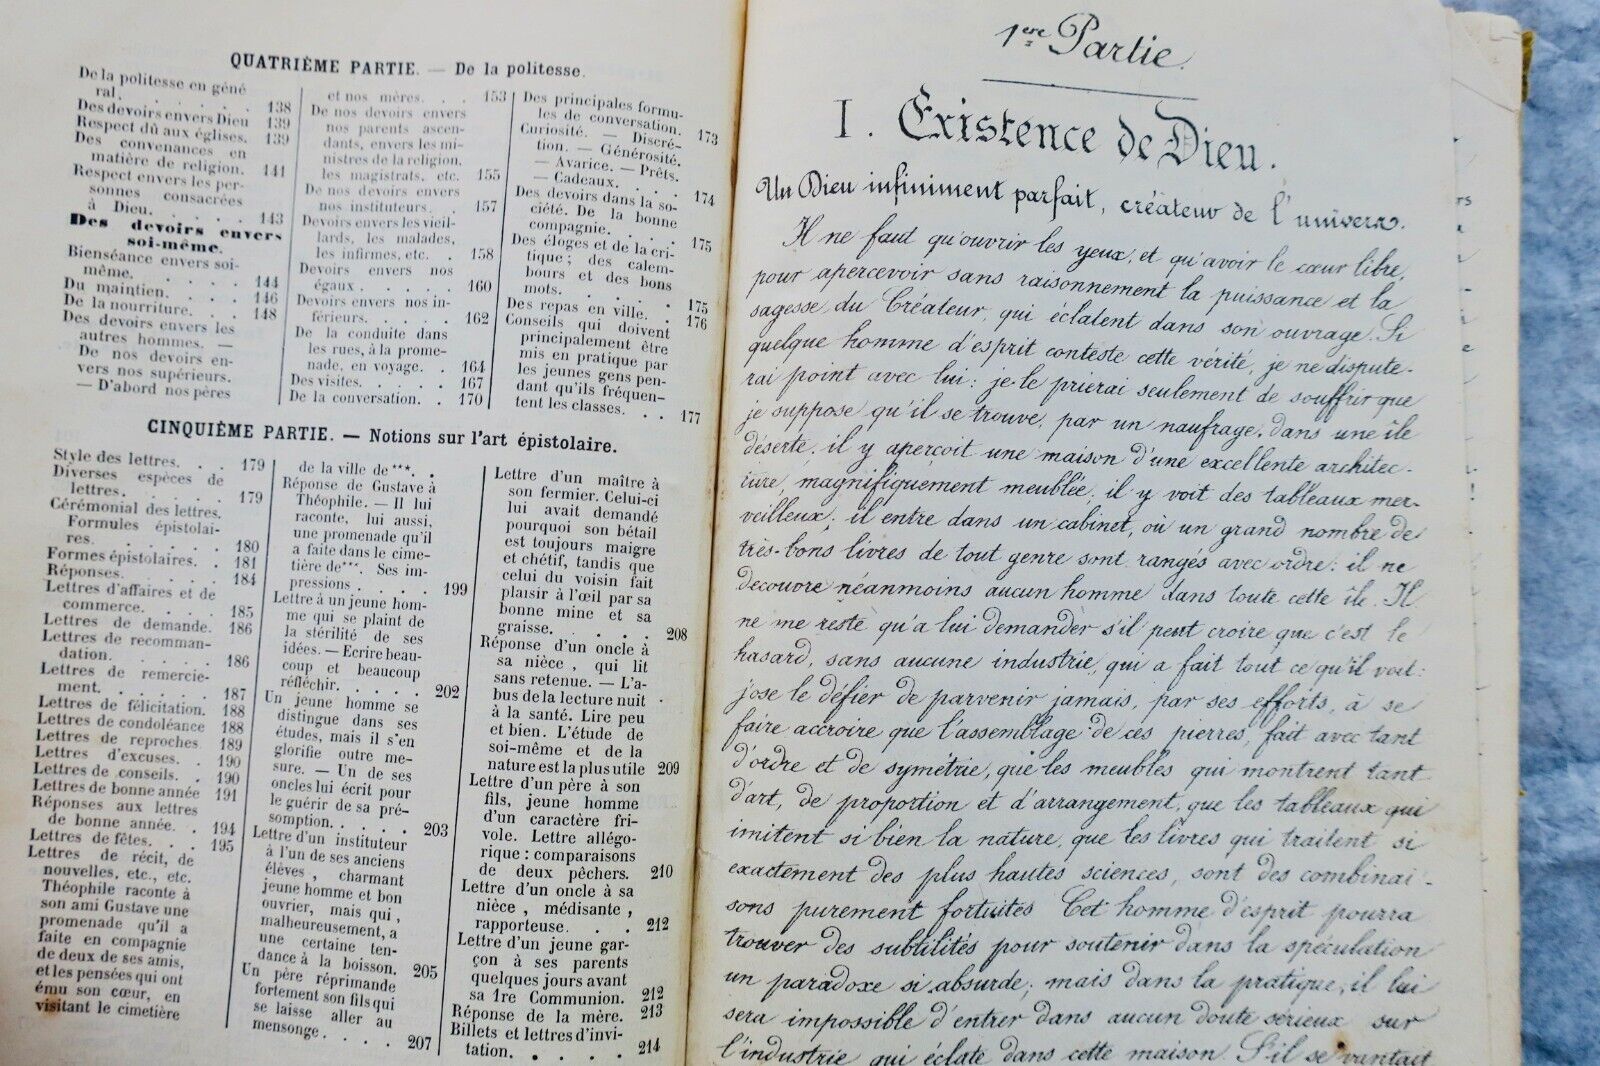 QUATRIÈME PARTIE. — De la politesse.
De la politesse en géné
ral. . . . . . . . 138
Des devoirs envers Dieu 139
Respect dû aux églises. 139
Des convenances en
matière de religion. 141
Respect envers les per-
sonnes consacrées
à Dieu. . . . . . 143
Des devoirs envers
soi-même.
Bienséance envers soi-
même. . . . . . . 144
Du maintien. . . . . 146
De la nourriture. . . 148
Des devoirs envers les
autres hommes. —
De nos devoirs en-
vers nos supérieurs.
— D'abord nos pères
et nos mères. . . 153
De nos devoirs envers
nos parents ascen-
dants, envers les mi-
nistres de la religion.
les magistrats, etc. 155
De nos devoirs envers
nos instituteurs. . 157
Devoirs envers les vieil-
lards, les malades,
les infirmes, etc. . 158
Devoirs envers nos
égaux. . . . . . 160
Devoirs envers nos in-
férieurs. . . . . . 162
De la conduite dans
les rues, à la prome-
nade, en voyage. . 164
Des visites. . . . . 167
De la conversation. . 170
Des principales formu-
les de conversation. 173
Curiosité. — Discré-
tion. — Générosité.
— Avarice. — Prêts.
— Cadeaux. . . . 174
Des devoirs dans la so-
ciété. De la bonne
compagnie. . . . 175
Des éloges et de la cri-
tique ; des calem-
bours et des bons
mots. . . . . . . 175
Des repas en ville. . 176
Conseils qui doivent
principalement être
mis en pratique par
les jeunes gens pen-
dant qu'ils fréquen-
tent les classes. . . 177
CINQUIÈME PARTIE. — Notions sur l'art épistolaire.
Style des lettres. . . 179
Diverses espèces de
lettres. . . . . . . 179
Cérémonial des lettres.
Formules épistolai-
res. . . . . . . . 180
Formes épistolaires. . 181
Réponses. . . . . . 184
Lettres d'affaires et de
commerce. . . . . 185
Lettres de demande. 186
Lettres de recomman-
dation. . . . . . 186
Lettres de remercie-
ment. . . . . . . 187
Lettres de félicitation. 188
Lettres de condoléance 188
Lettres de reproches 189
Lettres d'excuses. . 190
Lettres de conseils. . 190
Lettres de bonne année 191
Réponses aux lettres
de bonne année. . 194
Lettres de fêtes. . . 195
Lettres de récit, de
nouvelles, etc., etc.
Théophile raconte à
son ami Gustave une
promenade qu'il a
faite en compagnie
de deux de ses amis,
et les pensées qui ont
ému son cœur, en
visitant le cimetière
de la ville de ***. .
Réponse de Gustave à
Théophile. — Il lui
raconte, lui aussi,
une promenade qu'il
a faite dans le cime-
tière de ***. Ses im-
pressions . . . . 199
Lettre à un jeune hom-
me qui se plaint de
la stérilité de ses
idées. — Ecrire beau-
coup et beaucoup
réfléchir. . . . . 202
Un jeune homme se
distingue dans ses
études, mais il s'en
glorifie outre me-
sure. — Un de ses
oncles lui écrit pour
le guérir de sa pré-
somption. . . . . 203
Lettre d'un instituteur
à l'un de ses anciens
élèves , charmant
jeune homme et bon
ouvrier, mais qui ,
malheureusement, a
une certaine ten-
dance à la boisson. 205
Un père réprimande
fortement son fils qui
se laisse aller au
mensonge. . . . . 207
Lettre d'un maître à
son fermier. Celui-ci
lui avait demandé
pourquoi son bétail
est toujours maigre
et chétif, tandis que
celui du voisin fait
plaisir à l'œil par sa
bonne mine et sa
graisse. . . . . . 208
Réponse d'un oncle à
sa nièce , qui lit
sans retenue. — L'a-
bus de la lecture nuit
à la santé. Lire peu
et bien. L'étude de
soi-même et de la
nature est la plus utile 209
Lettre d'un père à son
fils, jeune homme
d'un caractère fri-
vole. Lettre allégo-
rique : comparaisons
de deux pêchers. 210
Lettre d'un oncle à sa
nièce , médisante ,
rapporteuse. . . . 212
Lettre d'un jeune gar-
çon à ses parents
quelques jours avant
sa 1re Communion. 212
Réponse de la mère. 213
Billets et lettres d'invi-
tation. . . . . . 214
1ère Partie.
I. Existence de Dieu.
Un Dieu infiniment parfait, créateur de l'univers.
Il ne faut qu'ouvrir les yeux, et qu'avoir le cœur libre,
pour apercevoir sans raisonnement la puissance et la
sagesse du Créateur, qui éclatent dans son ouvrage. Si
quelque homme d'esprit conteste cette vérité, je ne dispute-
rai point avec lui : je le prierai seulement de souffrir que
je suppose qu'il se trouve, par un naufrage, dans une île
déserte. il y aperçoit une maison d'une excellente architec-
ture, magnifiquement meublée; il y voit des tableaux mer-
veilleux; il entre dans un cabinet, où un grand nombre de
très-bons livres de tout genre sont rangés avec ordre : il ne
decouvre néanmoins aucun homme dans toute cette île. Il
ne me reste qu'a lui demander s'il peut croire que c'est le
hasard, sans aucune industrie, qui a fait tout ce qu'il voit :
j'ose le défier de parvenir jamais, par ses efforts, à se
faire accroire que l'assemblage de ces pierres, fait avec tant
d'ordre et de symétrie, que les meubles qui montrent tant
d'art, de proportion et d'arrangement, que les tableaux qui
imitent si bien la nature, que les livres qui traitent si
exactement des plus hautes sciences, sont des combinai-
sons purement fortuites Cet homme d'esprit pourra
trouver des subtilités pour soutenir dans la spéculation
un paradoxe si absurde; mais dans la pratique, il lui
sera impossible d'entrer dans aucun doute sérieux sur
l'industrie qui éclate dans cette maison. S'il se vantait